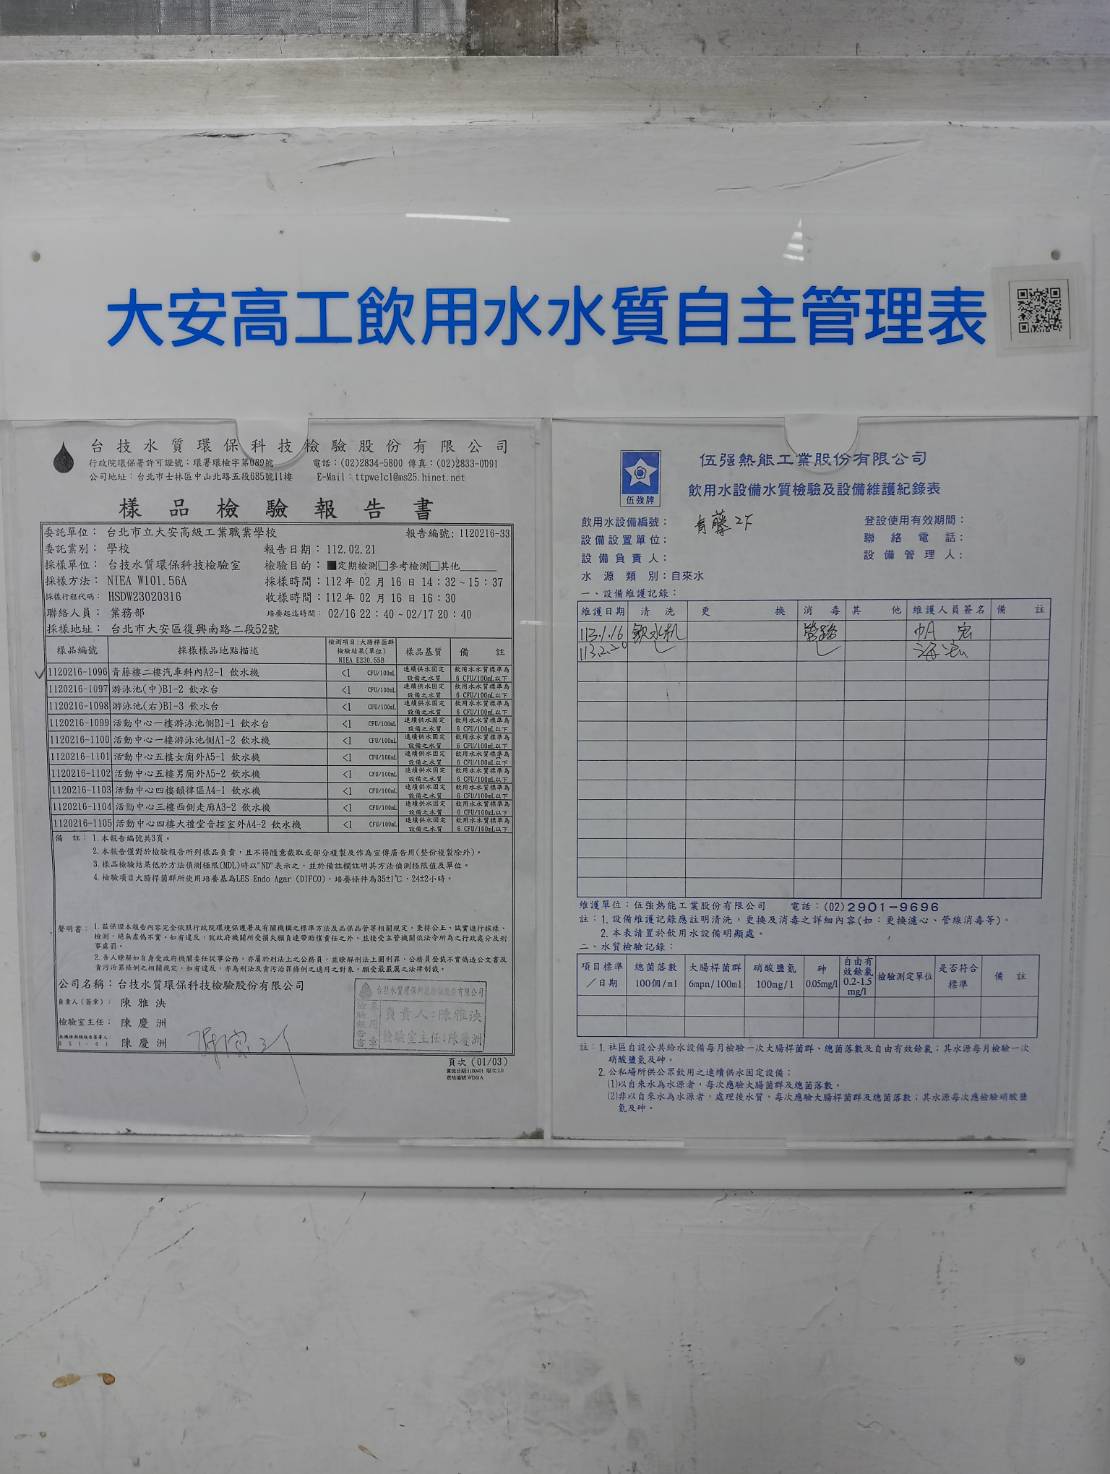 大安高工飲用水水質自主管理表
台技水質環保科技檢驗股份有限公司
行政院環保署許可證號：環署環檢字第089號 電話：(02)2834-5800 傳真：(02)2833-0791
公司地址：台北市士林區中山北路五段685號11樓 E-Mail：ttpwelcl@ms25.hinet.net
樣品檢驗報告書
委託單位： 台北市立大安高級工業職業學校 報告編號: 1120216-33
委託業別： 學校 報告日期：112.02.21
採樣單位： 台技水質環保科技檢驗室 檢驗目的：■定期檢測□參考檢測□其他
採樣方法： NIEA W101.56A 採樣時間：112年 02月 16日 14：32~15：37
採樣行程代碼： HSDW23020316 收樣時間：112年 02月 16日 16：30
聯絡人員： 業務部 培養起迄時間： 02/16 22：40~02/17 20：40
採樣地址： 台北市大安區復興南路二段52號
樣品編號 採樣樣品地點描述 檢測項目:大腸桿菌群 檢驗結果(單位) NIEA E230.55B 樣品基質 備 註
1120216-1096 青藤樓二樓汽車科內A2-1 飲水機 <1 CFU/100mL 連續供水固定設備之水質 飲用水水質標準為6 CFU/100mL以下
1120216-1097 游泳池(中)B1-2 飲水台 <1 CFU/100mL 連續供水固定設備之水質 飲用水水質標準為6 CFU/100mL以下
1120216-1098 游泳池(右)B1-3 飲水台 <1 CFU/100mL 連續供水固定設備之水質 飲用水水質標準為6 CFU/100mL以下
1120216-1099 活動中心一樓游泳池側B1-1 飲水台 <1 CFU/100mL 連續供水固定設備之水質 飲用水水質標準為6 CFU/100mL以下
1120216-1100 活動中心一樓游泳池側A1-2 飲水機 <1 CFU/100mL 連續供水固定設備之水質 飲用水水質標準為6 CFU/100mL以下
1120216-1101 活動中心五樓女廁外A5-1 飲水機 <1 CFU/100mL 連續供水固定設備之水質 飲用水水質標準為6 CFU/100mL以下
1120216-1102 活動中心五樓男廁外A5-2 飲水機 <1 CFU/100mL 連續供水固定設備之水質 飲用水水質標準為6 CFU/100mL以下
1120216-1103 活動中心四樓韻律區A4-1 飲水機 <1 CFU/100mL 連續供水固定設備之水質 飲用水水質標準為6 CFU/100mL以下
1120216-1104 活動中心三樓西側走廊A3-2 飲水機 <1 CFU/100mL 連續供水固定設備之水質 飲用水水質標準為6 CFU/100mL以下
1120216-1105 活動中心四樓大禮堂音控室外A4-2 飲水機 <1 CFU/100mL 連續供水固定設備之水質 飲用水水質標準為6 CFU/100mL以下
備 註： 1.本報告編號共3頁。
2.本報告僅對於檢驗報告所列樣品負責，且不得隨意截取或部分複製及作為宣傳廣告用(整份複製除外)。
3.樣品檢驗結果低於方法偵測極限(MDL)時以"ND"表示之，並於備註欄註明其方法偵測極限值及單位。
4.檢驗項目大腸桿菌群所使用培養基為LES Endo Agar (DIFCO)，培養條件為35±1℃，24±2小時。
聲明書： 1.茲保證本報告內容完全依照行政院環境保護署及有關機構之標準方法及品保品管等相關規定，秉持公正、誠實進行採樣、
檢測，絕無虛偽不實，如有違反，就政府機關所受損失願負連帶賠償責任之外，並接受主管機關依法令所為之行政處分及刑
事處罰。
2.吾人瞭解如自身受政府機關委任從事公務，亦屬於刑法上之公務員，並瞭解刑法上圖利罪、公務員登載不實偽造公文書及
貪污治罪條例之相關規定，如有違反，亦為刑法及貪污治罪條例之適用之對象，願受最嚴厲之法律制裁。
公司名稱：台技水質環保科技檢驗股份有限公司
負責人(簽章)： 陳雅泱
檢驗室主任： 陳慶洲
陳慶洲
台技水質環保科技檢驗股份有限公司
檢驗報告專用章
負責人：陳雅泱
檢驗室主任：陳慶洲
頁次 (01/03)
伍強牌
伍强熱能工業股份有限公司
飲用水設備水質檢驗及設備維護紀錄表
飲用水設備編號： 青藤2F 登設使用有效期間：
設備設置單位： 聯絡電話：
設備負責人： 設備管理人：
水源類別：自來水
一、設備維護記錄：
維護日期 清洗 更換 消毒 其他 維護人員簽名 備註
113.1.16 飲水机 管路
113.2.20
維護單位：伍強熱能工業股份有限公司 電話：(02)2901-9696
註：1.設備維護記錄應註明清洗，更換及消毒之詳細內容(如：更換濾心、管線消毒等)。
2.本表請置於飲用水設備明顯處。
二、水質檢驗記錄：
項目標準／日期 總菌落數 100個/ml 大腸桿菌群 6mpn/100ml 硝酸鹽氮 100mg/l 砷 0.05mg/l 自由有效餘氯 0.2-1.5 mg/l 檢驗測定單位 是否符合標準 備註
註：1.社區自設公共給水設備每月檢驗一次大腸桿菌群、總菌落數及自由有效餘氯；其水源每月檢驗一次
硝酸鹽氮及砷。
2.公私場所供公眾飲用之連續供水固定設備：
(1)以自來水為水源者，每次應驗大腸菌群及總菌落數。
(2)非以自來水為水源者，處理後水質，每次應驗大腸桿菌群及總菌落數；其水源每次應檢驗硝酸鹽
氮及砷。